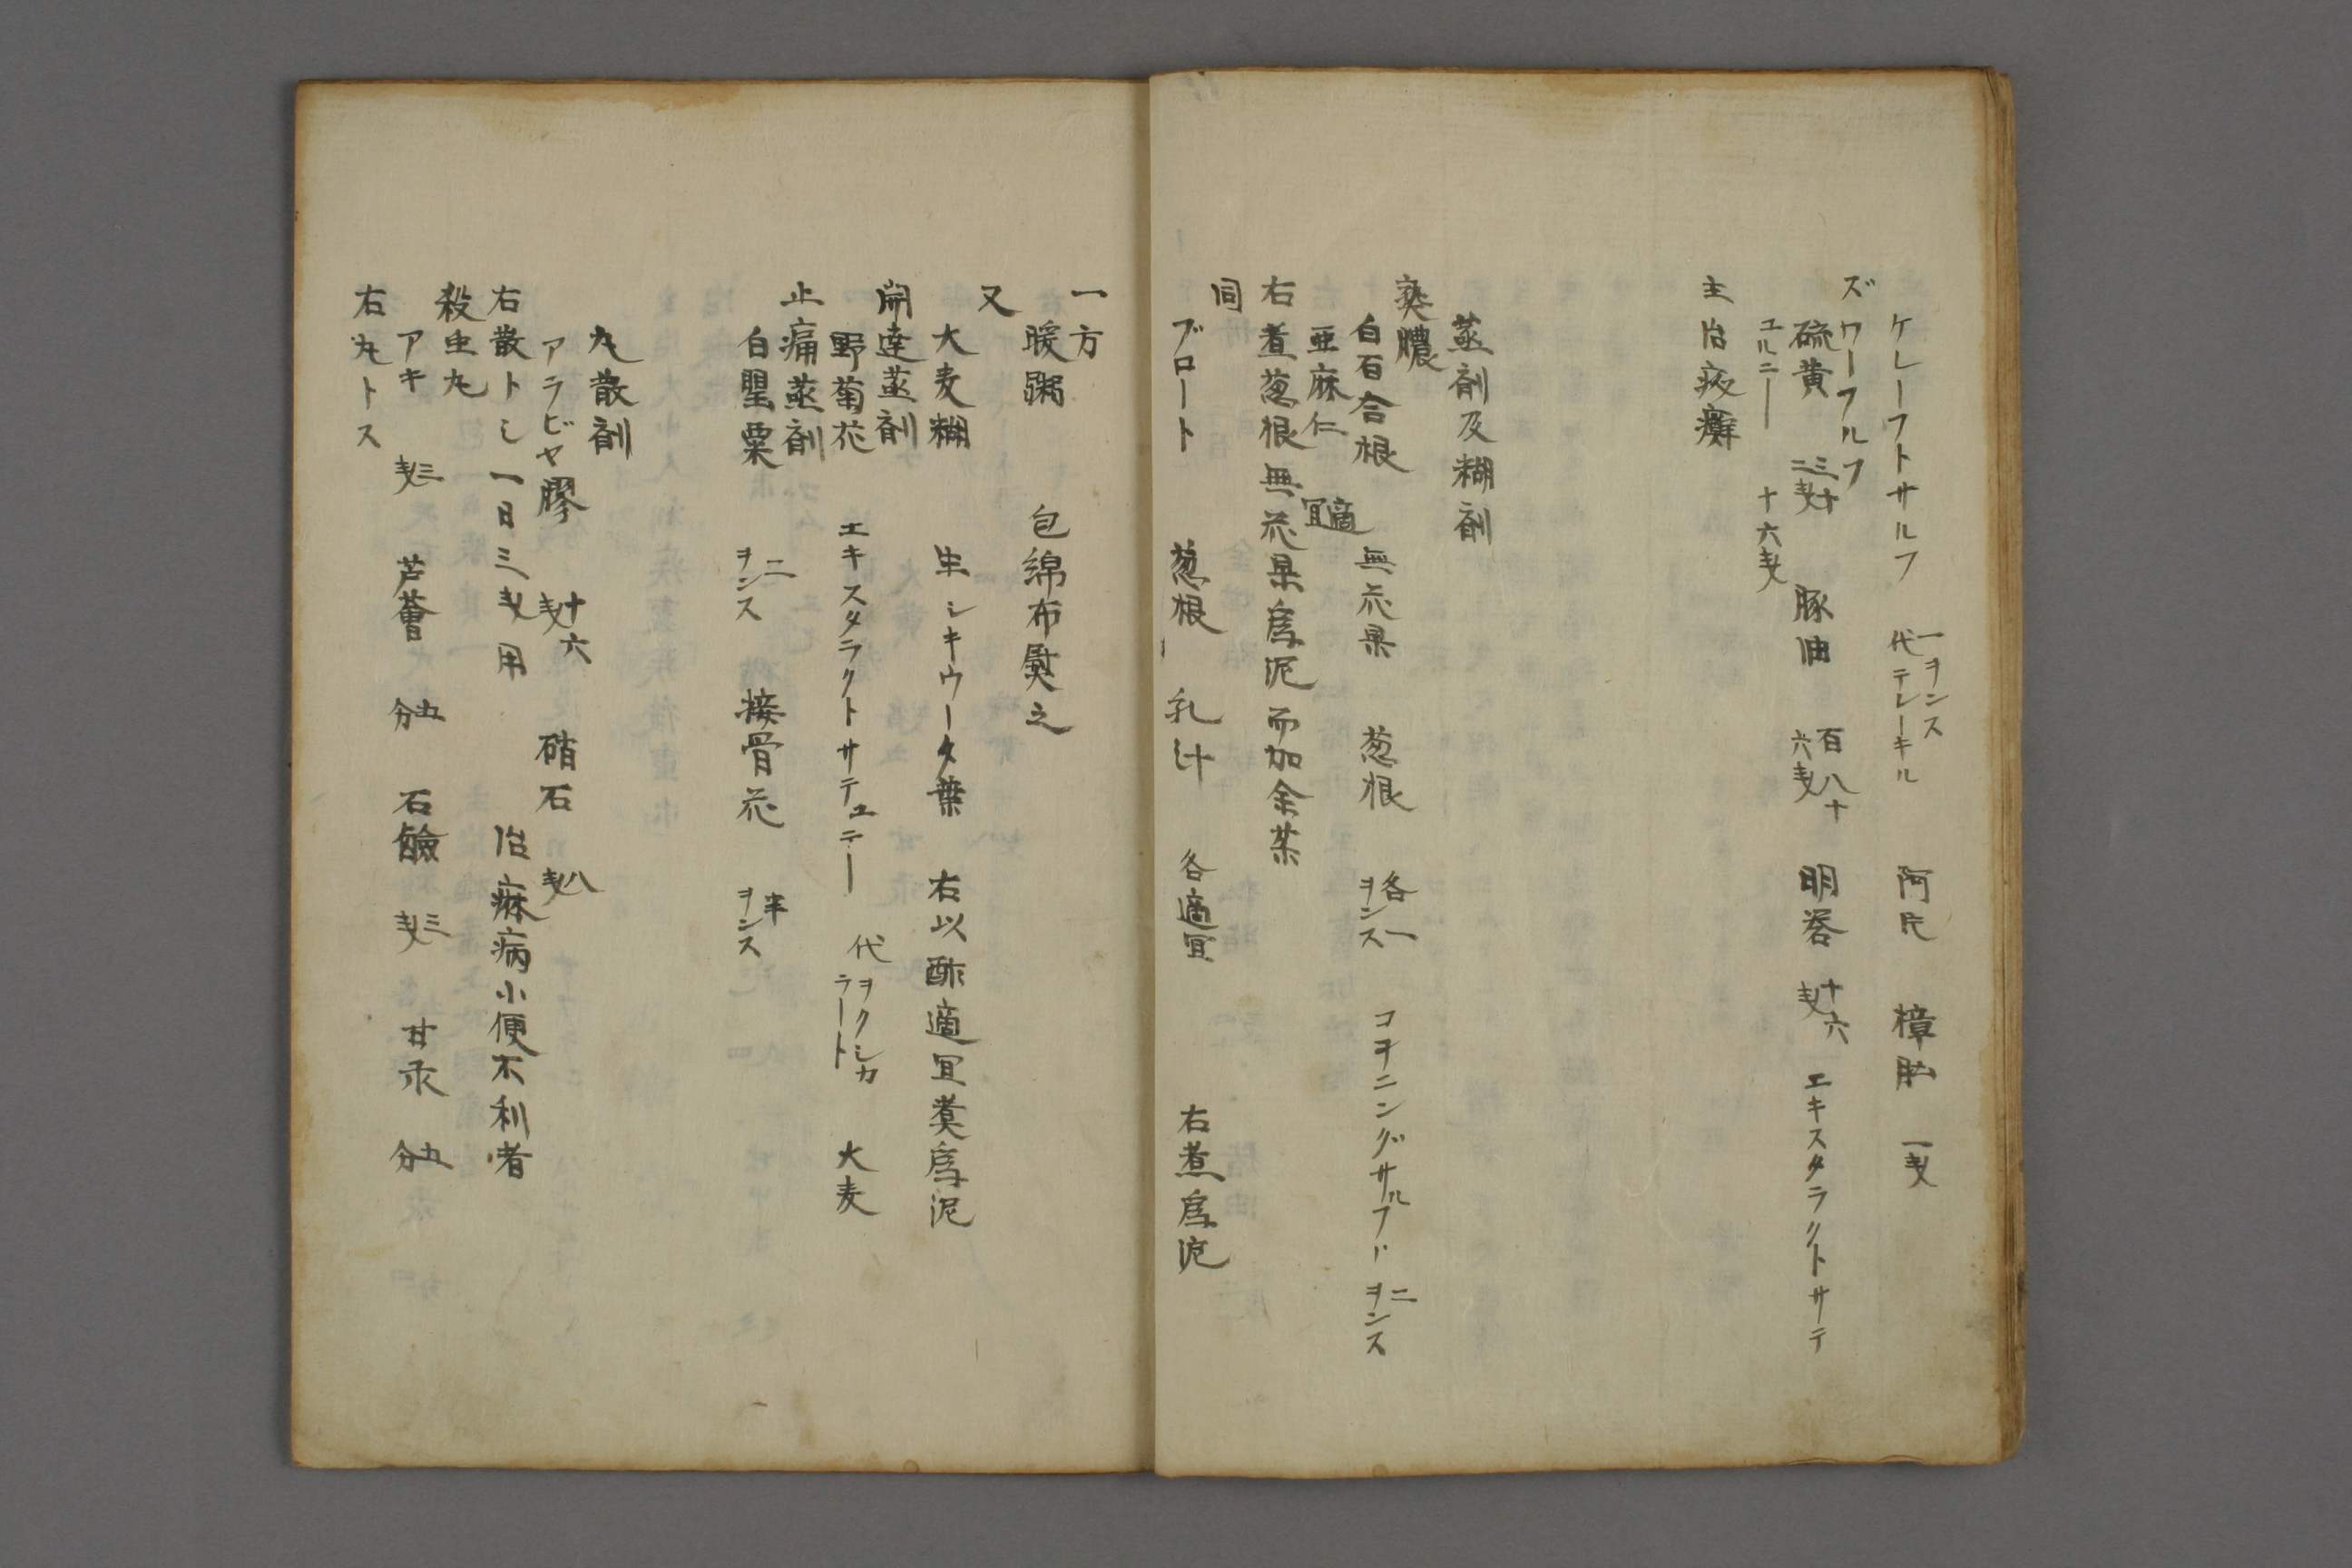 ケレーフトサルフ 一ヲンス 代テレーキル 阿片 樟脳 一戔
ズワーフルフ
硫黄 三十二戔 豚油 百八十六戔 明礬 十六戔 エキスタラクトサテ
ユルニー 十六戔
主治疥癬
蒸剤及糊剤
熟膿
白石合根 無花果 葱根 各一ヲンス コヲニングサルフ 二ヲンス
亜麻仁 適宜
右煮葱根無花果為泥而加余茶
同
ブロート 葱根 乳汁 各適宜 右煮為泥
一方
暖粥 包綿布熨之
又
大麦糊 生シキウータ葉 右以酢適宜煮為泥
開達蒸剤
野菊花 エキスタラクトサテユニー 代ヲクシカラート 大麦
止痛蒸剤
白罌粟 二ヲンス 接骨花 半ヲンス
丸散剤
アラビヤ膠 十六戔 硝石 八戔
右散トシ一日三戔用 治痳病小便不利者
殺虫丸
アキ 三戔 芦薈 五分 石鹸 三戔 甘汞 五分
右丸トス